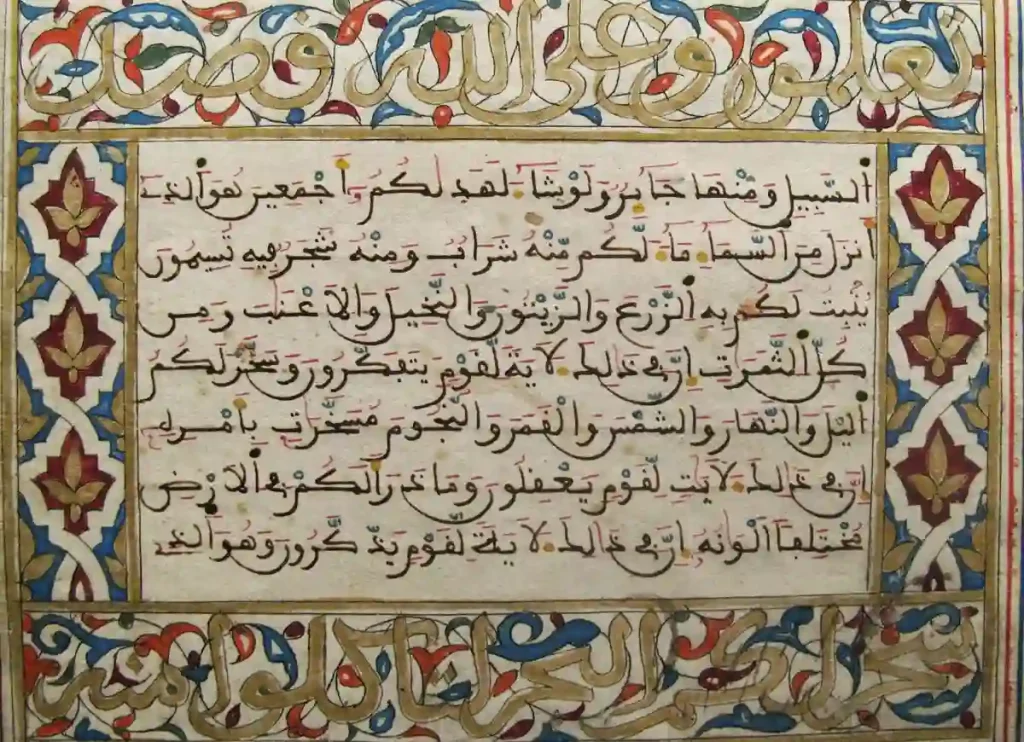 تعلمون وعلى الله قصد
اَ۬لسَّبِيلِ وَمِنْهَا جَآئِرٌ وَلَوْ شَآءَ لَهَد۪يٰكُمُ أَجْمَعِينَ هُوَ اَ۬لذِے
أَنزَلَ مِنَ اَ۬لسَّمَآءِ مَآءً لَّكُم مِّنْهُ شَرَابٌ وَمِنْهُ شَجَرٌ فِيهِ تُسِيمُونَ
يُنۢبِتُ لَكُم بِهِ اِ۬لزَّرْعَ وَالزَّيْتُونَ وَالنَّخِيلَ وَالَاعْنَٰبَ وَمِن
كُلِّ اِ۬لثَّمَرَٰتِ إِنَّ فِے ذَٰلِكَ لَأٓيَةً لِّقَوْمٍ يَتَفَكَّرُونَ وَسَخَّرَ لَكُمُ
اُ۬ليْلَ وَالنَّهَارَ وَالشَّمْسَ وَالْقَمَرَ وَالنُّجُومَ مُسَخَّرَٰتِۢ بِأَمْرِهِ
إِنَّ فِے ذَٰلِكَ لَأٓيَٰتٍ لِّقَوْمٍ يَعْقِلُونَ وَمَا ذَرَأَ لَكُمْ فِے اِ۬لَارْضِ
مُخْتَلِفاً اَلْوَٰنُهُ إِنَّ فِے ذَٰلِكَ لَأٓيَةً لِّقَوْمٍ يَذَّكَّرُونَ وَهُوَ اَ۬لذِے
سخر لكم البحر لتاكلوا منه